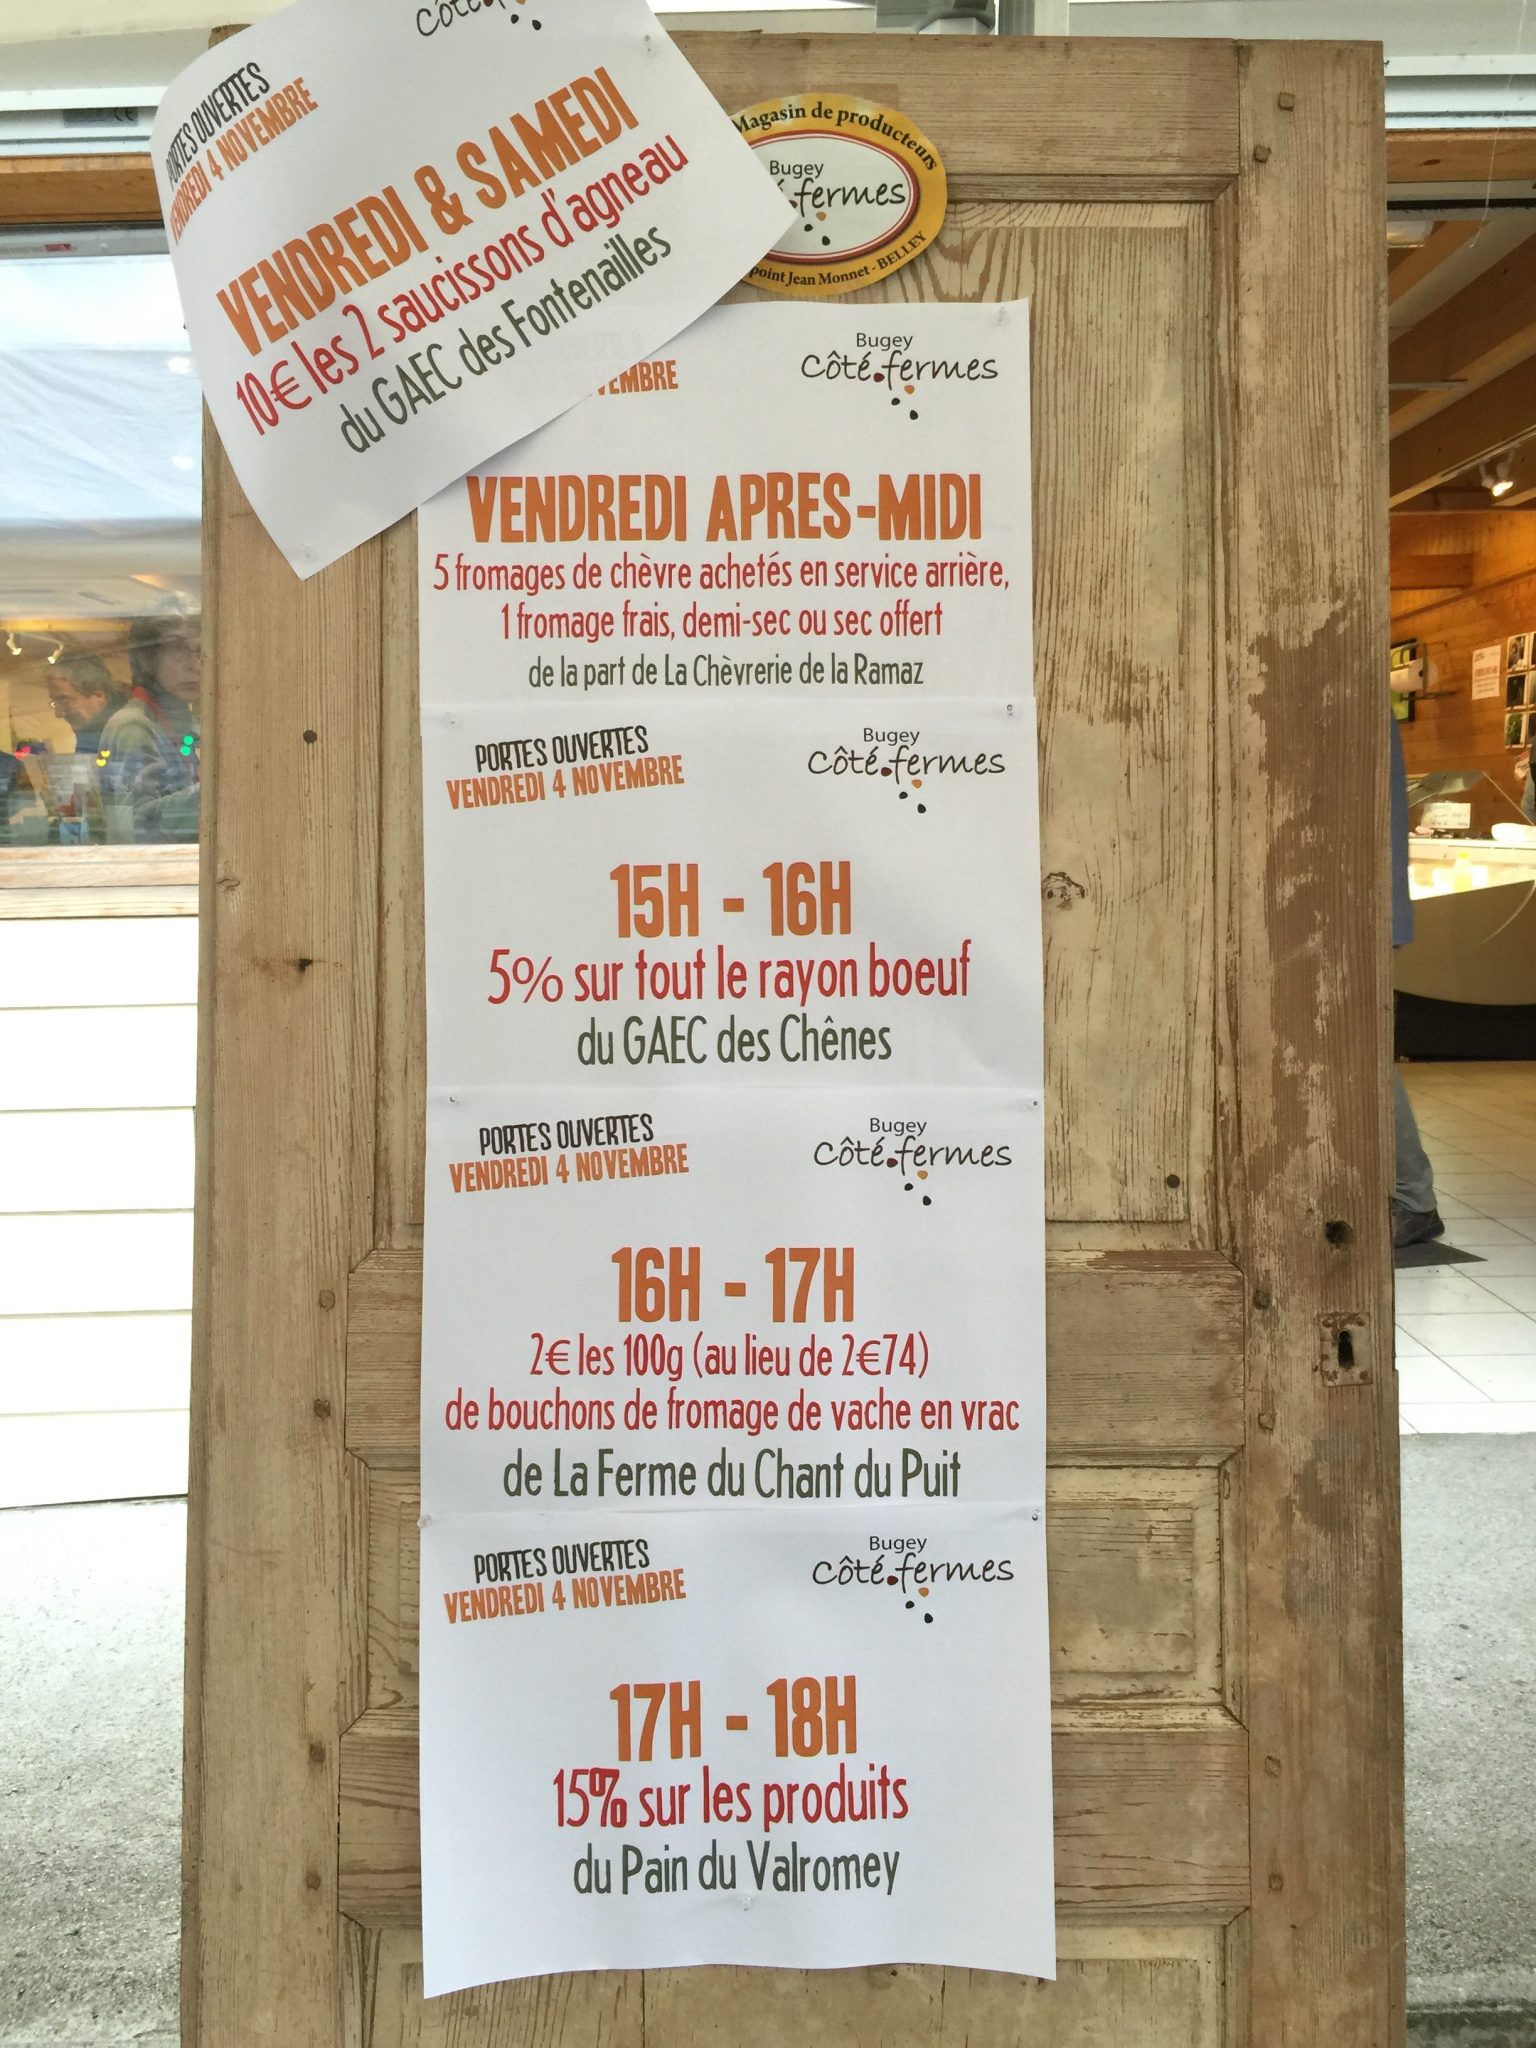 Côté
PORTES OUVERTES
VENDREDI 4 NOVEMBRE
VENDREDI & SAMEDI
10€ les 2 saucissons d'agneau
du GAEC des Fontenailles
Magasin de producteurs
Bugey
fermes
point Jean Monnet - BELLEY
VEMBRE
Bugey
Côté fermes
VENDREDI APRES-MIDI
5 fromages de chèvre achetés en service arrière,
1 fromage frais, demi-sec ou sec offert
de la part de La Chèvrerie de la Ramaz
PORTES OUVERTES
VENDREDI 4 NOVEMBRE
Bugey
Côté fermes
15H - 16H
5% sur tout le rayon boeuf
du GAEC des Chênes
PORTES OUVERTES
VENDREDI 4 NOVEMBRE
Bugey
Côté fermes
16H - 17H
2€ les 100g (au lieu de 2€74)
de bouchons de fromage de vache en vrac
de La Ferme du Chant du Puit
PORTES OUVERTES
VENDREDI 4 NOVEMBRE
Bugey
Côté fermes
17H - 18H
15% sur les produits
du Pain du Valromey